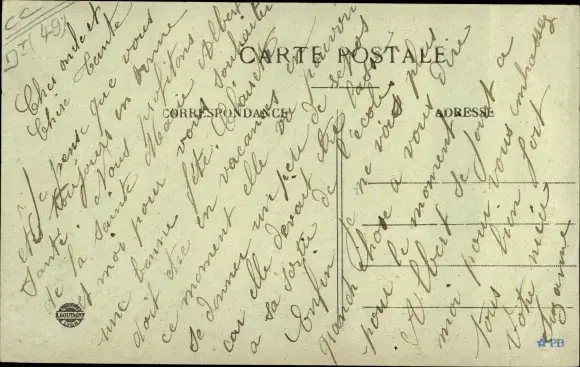 CC
DT (49)
CARTE POSTALE
CORRESPONDANCE
ADRESSE
Cher oncle et
Chère tante
Je pense que vous
êtes toujours en bonne
santé. Nous profitons
de la sainte Marie Albert
et moi pour vous souhaiter
une bonne fête.
doit être en vacances en
ce moment elle va pouvoir
se donner un peu de repos
car elle devait être lasse
a sa sortie de l'école.
Enfin je ne vois plus
grand chose a vous dire
pour le moment
Albert se joint a
moi pour vous embrasser
tous bien fort
votre nièce
Suzanne
PB